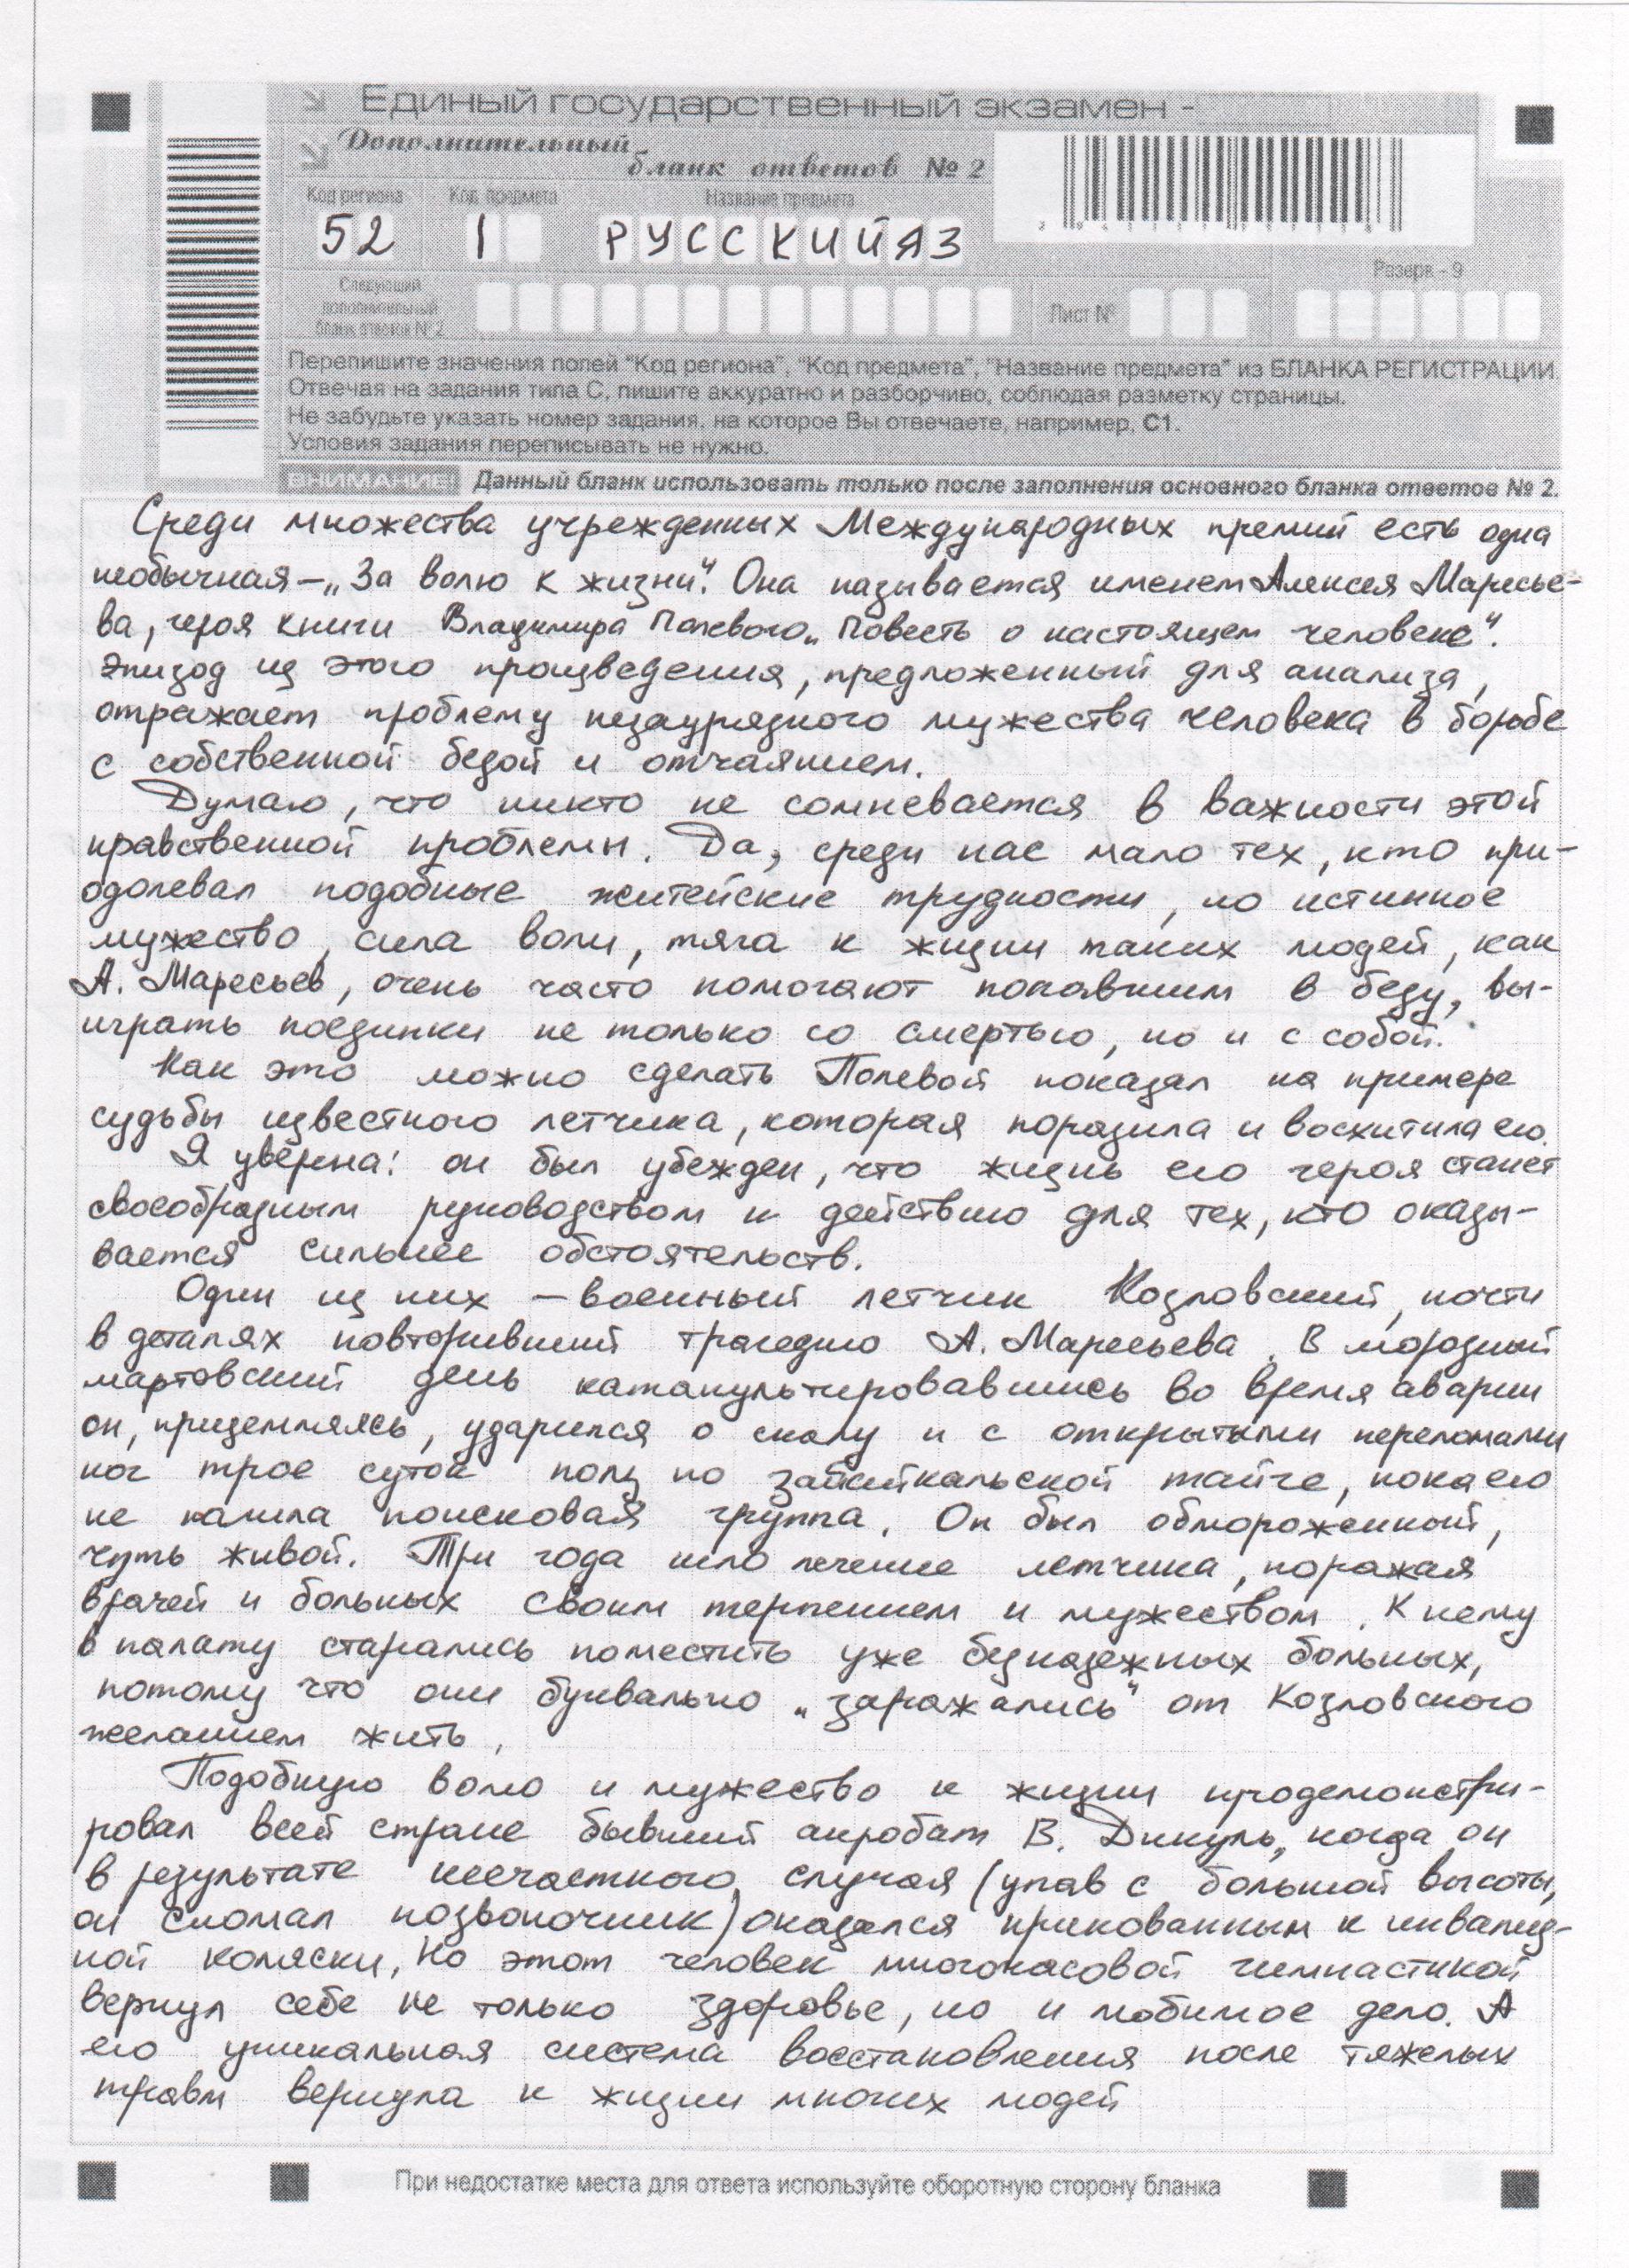 Единый государственный экзамен -
Дополнительный
бланк ответов № 2
Код региона Код предмета Название предмета
52 1 РУССКИЙЯЗ
Резерв - 9
Следующий
дополнительный
бланк ответов № 2
Лист №
Перепишите значения полей "Код региона", "Код предмета", "Название предмета" из БЛАНКА РЕГИСТРАЦИИ.
Отвечая на задания типа С, пишите аккуратно и разборчиво, соблюдая разметку страницы.
Не забудьте указать номер задания, на которое Вы отвечаете, например, С1.
Условия задания переписывать не нужно.
ВНИМАНИЕ! Данный бланк использовать только после заполнения основного бланка ответов № 2.
Среди множества учрежденных Международных премий есть одна
необычная – „За волю к жизни". Она называется именем Алексея Маресье-
ва, героя книги Владимира Полевого „Повесть о настоящем человеке".
Эпизод из этого произведения, предложенный для анализа,
отражает проблему незаурядного мужества человека в борьбе
с собственной бедой и отчаянием.
Думаю, что никто не сомневается в важности этой
нравственной проблемы. Да, среди нас мало тех, кто при-
одолевал подобные житейские трудности, но истинное
мужество, сила воли, тяга к жизни таких людей, как
А. Маресьев, очень часто помогают попавшим в беду, вы-
играть поединки не только со смертью, но и с собой.
Как это можно сделать Полевой показал на примере
судьбы известного летчика, которая поразила и восхитила его.
Я уверна: он был убежден, что жизнь его героя станет
своеобразным руководством к действию для тех, кто оказы-
вается сильнее обстоятельств.
Один из них – военный летчик Козловский, почти
в деталях повторивший трагедию А. Маресьева. В морозный
мартовский день катапультировавшись во время аварии
он, приземляясь, ударился о скалу и с открытыми переломами
ног трое суток полз по забайкальской тайге, пока его
не нашла поисковая группа. Он был обмороженный,
чуть живой. Три года шло лечение летчика, поражая
врачей и больных своим терпением и мужеством. К нему
в палату старались поместить уже безнадежных больных,
потому что они буквально „заражались" от Козловского
желанием жить.
Подобную волю и мужество к жизни продемонстри-
ровал всей стране бывший акробат В. Дикуль, когда он
в результате несчастного случая (упав с большой высоты,
он сломал позвоночник) оказался прикованным к инвалид-
ной коляски. Но этот человек многочасовой гимнастикой
вернул себе не только здоровье, но и любимое дело. А
его уникальная система восстановления после тяжелых
травм вернула к жизни многих людей
При недостатке места для ответа используйте оборотную сторону бланка